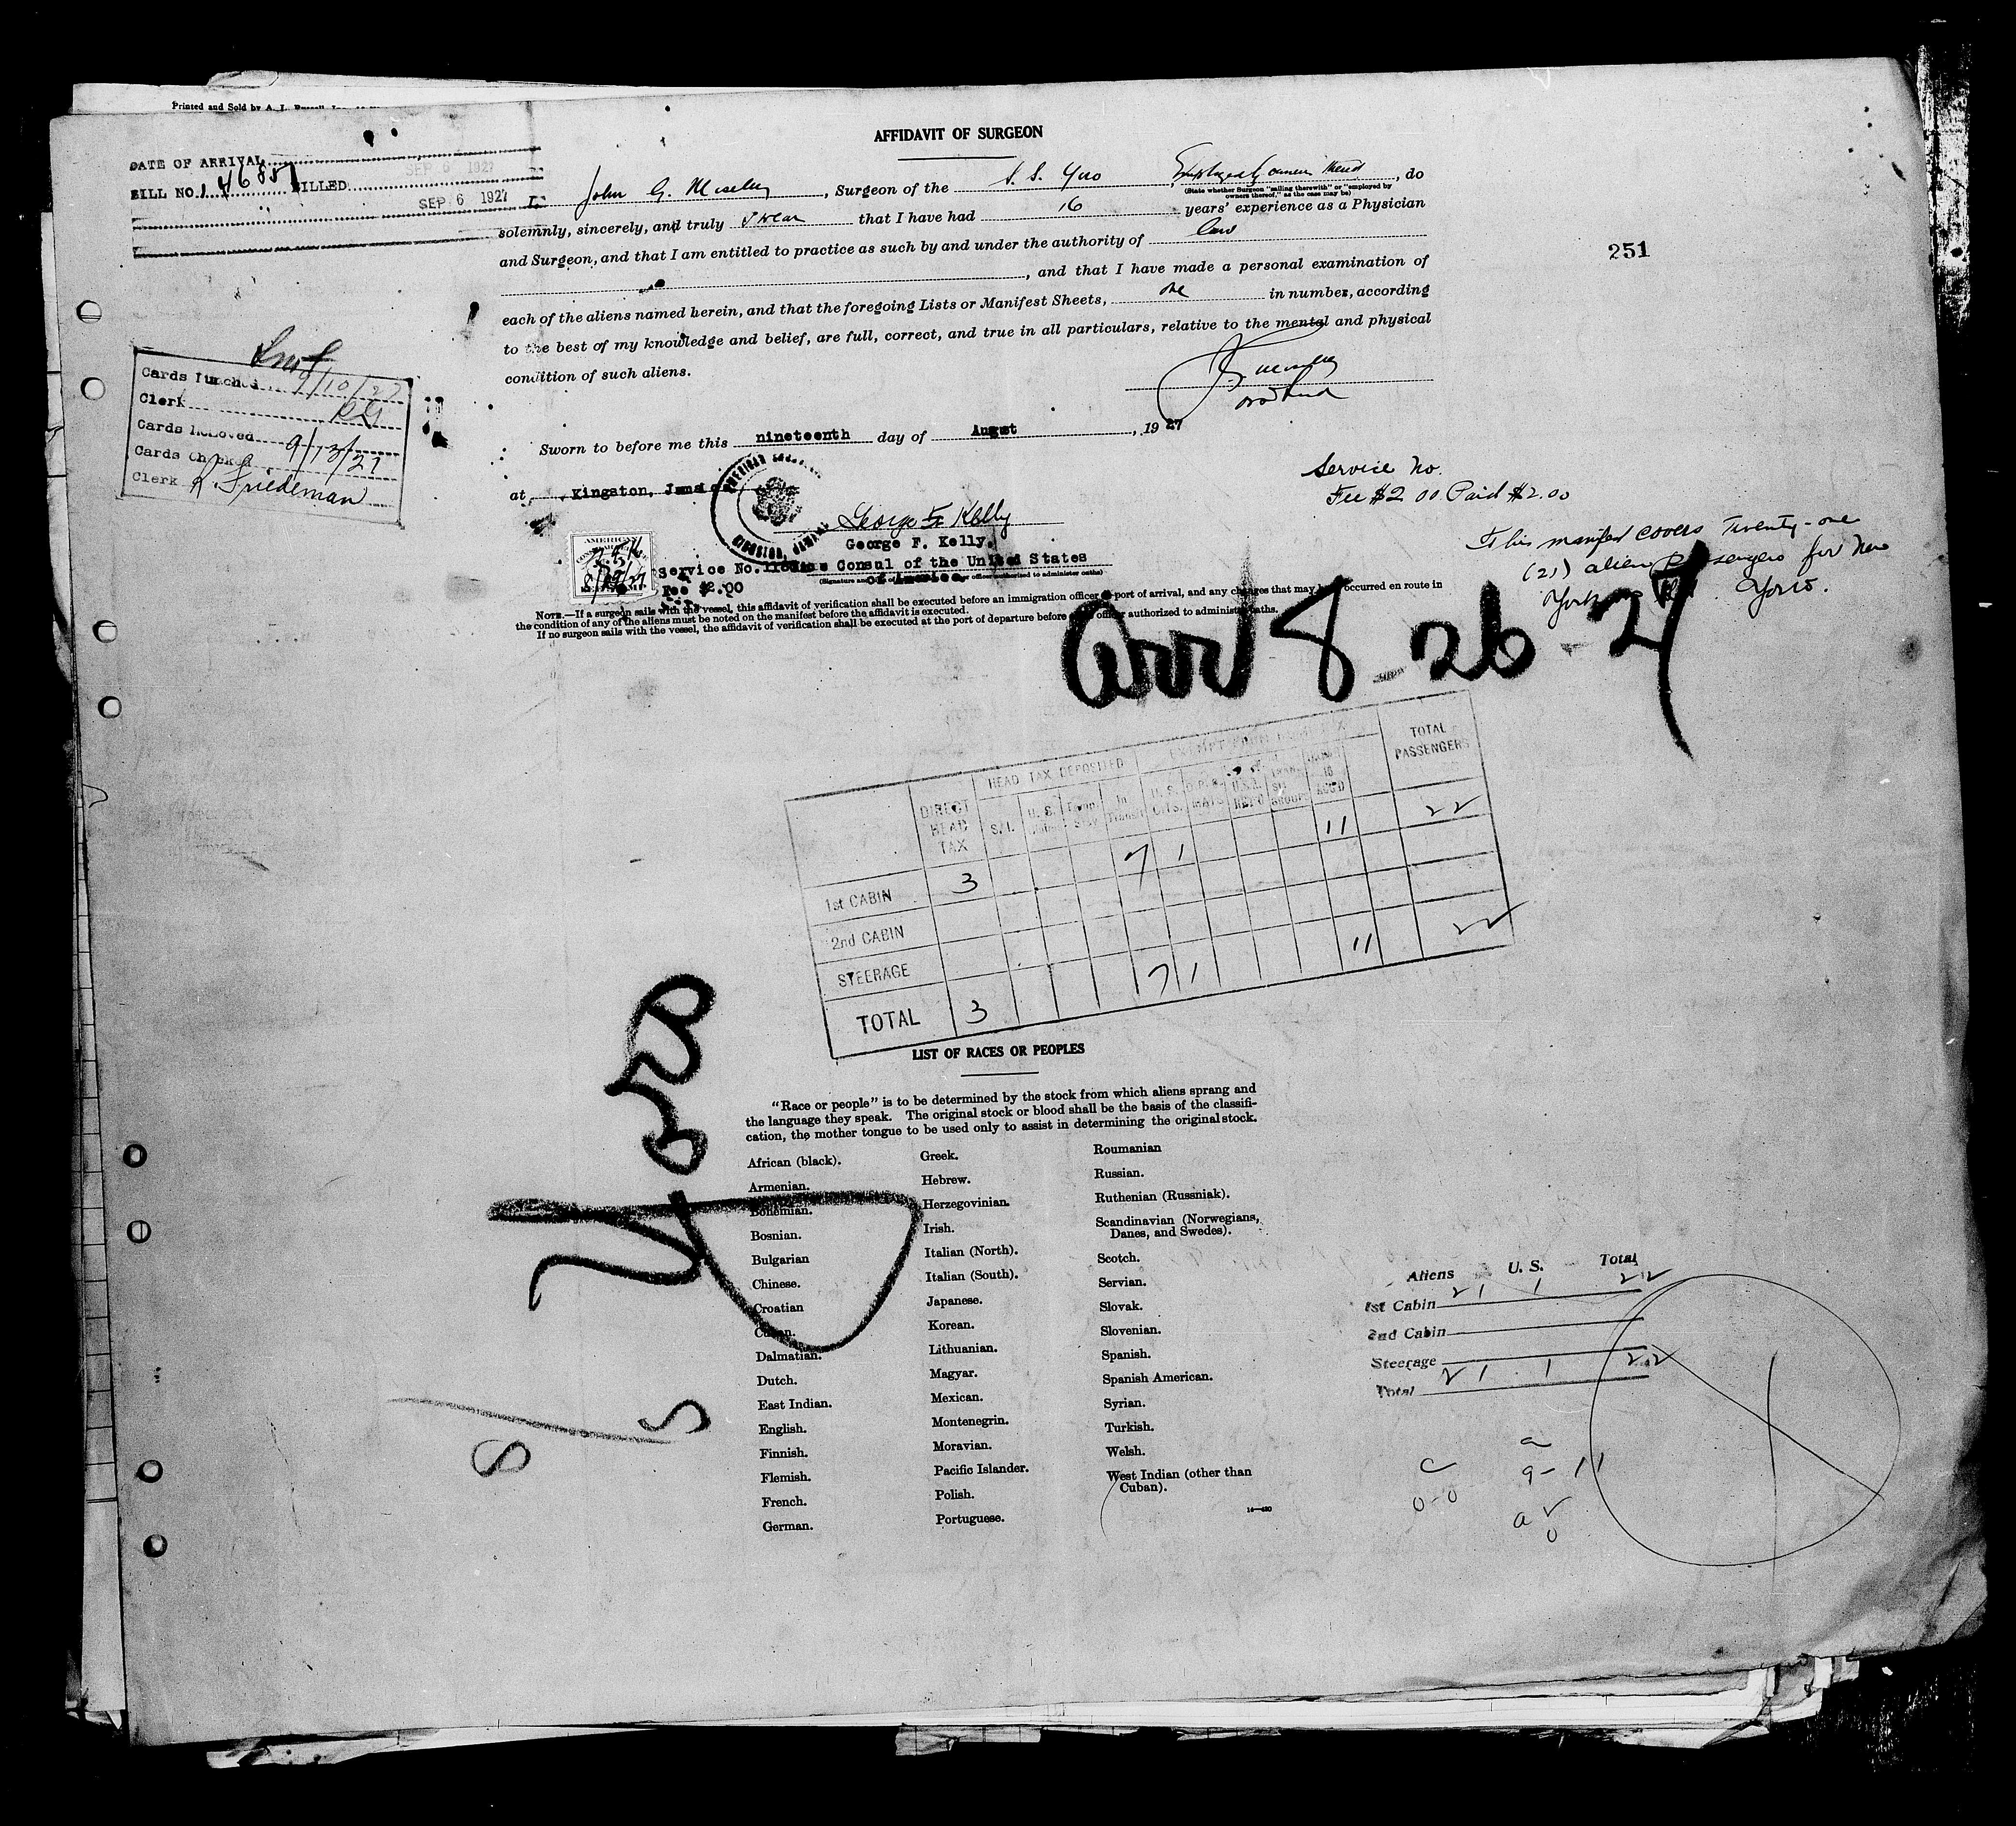 Printed and Sold by A. J.
AFFIDAVIT OF SURGEON
DATE OF ARRIVAL SEP 6 1927
BILL NO. BILLED SEP 6 1927
I, John G. Moseley, Surgeon of the S. S., do
(State whether Surgeon "sailing therewith" or "employed by owners thereof," as the case may be)
solemnly, sincerely, and truly swear that I have had 16 years' experience as a Physician
and Surgeon, and that I am entitled to practice as such by and under the authority of law
, and that I have made a personal examination of
251
each of the aliens named herein, and that the foregoing Lists or Manifest Sheets, one in number, according
to the best of my knowledge and belief, are full, correct, and true in all particulars, relative to the mental and physical
condition of such aliens.
Cards Punched 9/10/27
Clerk
Cards Removed
Cards Checked 9/13/27
Clerk Friedeman
Sworn to before me this nineteenth day of August, 1927
at Kingston, Jamaica
George F. Kelly
George F. Kelly,
Consul of the United States
of America
Service No.
Fee $2.00
KINGSTON, JAMAICA
AMERICAN
Service No.
Fee $2.00 Paid $2.00
This manifest covers Twenty-one
(21) alien passengers for New
York
NOTE.—If a surgeon sails with the vessel, this affidavit of verification shall be executed before an immigration officer port of arrival, and any changes that may occurred en route in
the condition of any of the aliens must be noted on the manifest before the affidavit is executed.
If no surgeon sails with the vessel, the affidavit of verification shall be executed at the port of departure before officer authorized to administer oaths.
Arr 8-26-27
HEAD TAX DEPOSITED
DIRECT HEAD TAX S.I. In Transit U.S. TOTAL PASSENGERS
1st CABIN 3 7 1 11 22
2nd CABIN
STEERAGE
TOTAL 3 7 1 11 22
LIST OF RACES OR PEOPLES
"Race or people" is to be determined by the stock from which aliens sprang and
the language they speak. The original stock or blood shall be the basis of the classifi-
cation, the mother tongue to be used only to assist in determining the original stock.
African (black).
Armenian.
Bohemian.
Bosnian.
Bulgarian
Chinese.
Croatian
Cuban.
Dalmatian.
Dutch.
East Indian.
English.
Finnish.
Flemish.
French.
German.
Greek.
Hebrew.
Herzegovinian.
Irish.
Italian (North).
Italian (South).
Japanese.
Korean.
Lithuanian.
Magyar.
Mexican.
Montenegrin.
Moravian.
Pacific Islander.
Polish.
Portuguese.
Roumanian
Russian.
Ruthenian (Russniak).
Scandinavian (Norwegians,
Danes, and Swedes).
Scotch.
Servian.
Slovak.
Slovenian.
Spanish.
Spanish American.
Syrian.
Turkish.
Welsh.
West Indian (other than
Cuban).
Aliens U. S. Total
1st Cabin 21 1 22
2nd Cabin
Steerage
Total 21 1 22
a
c 9-11
0-0